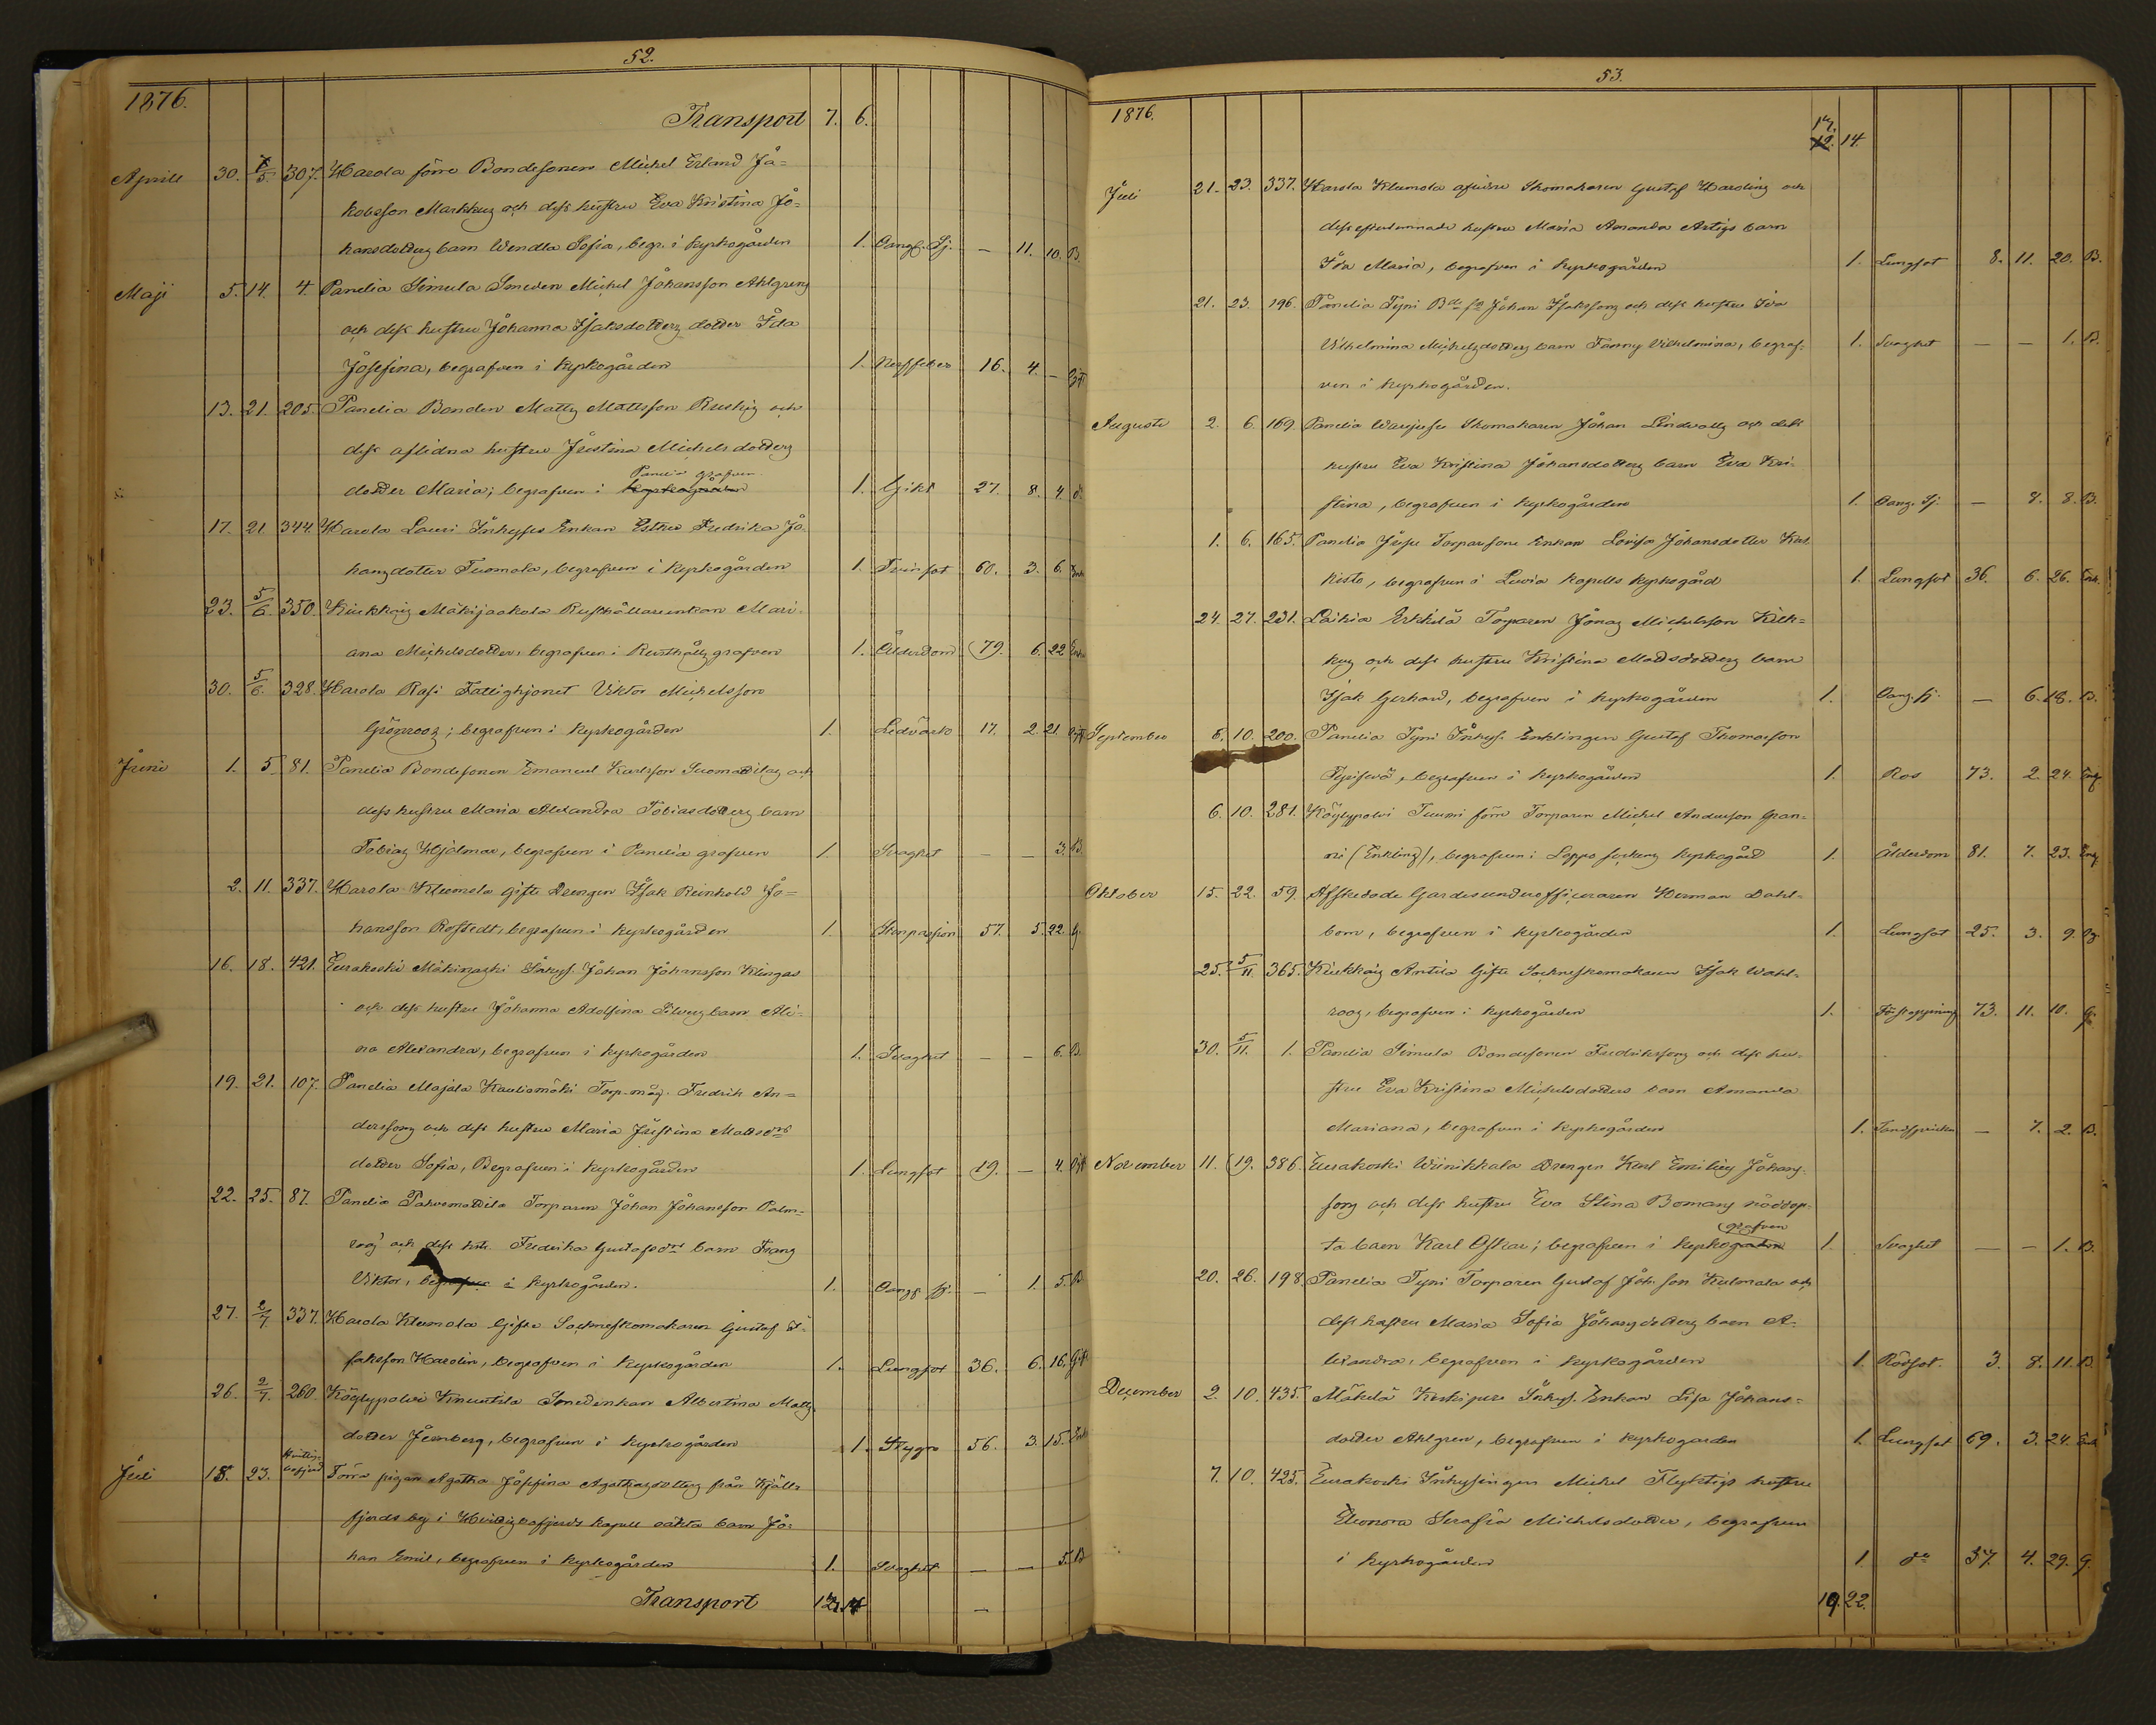 52.
1876.
Transport 7. 6.
Aprill 30. 5. 307. Harola förre Bondesonen Michel Erland Ja=
kobsson Markkus och dess hustru Eva Kristina Jo=
hansdotters barn Wendla Sofia, begr. i kyrkogården 1. Oangf. Sj. — 11. 10. B.
Maji 5. 14. 4. Panelia Simula Smeden Michel Johansson Ahlgrens
och dess hustru Johanna Isaksdotters dotter Ida
Josefina, begrafven i kyrkogården 1. Nerffeber 16. 4. —
13. 21. 205. Panelia Bonden Matts Mattsson Ruskis och
dess aflidna hustru Justina Michelsdotters
Panelia grafven
dotter Maria; begrafven i kyrkogården 1. Gikt 27. 8. 4.
17. 21. 344. Harola Lauri Inhyses Enkan Esther Fredrika Jo=
hansdotter Tuomola, begrafven i kyrkogården 1. Tvinsot 60. 3. 6. Enk
23. 5/6. 350. Kiukkais Mäkijaakola Rusthållareenkan Mari=
ana Michelsdotter, begrafven i Rusthålls grafven 1. Ålderdom 79. 6. 22 Enk
30. 5/6. 328. Harola Rasi Fattighjonet Viktor Michelsson
Grönroos; begrafven i kyrkogården 1. Ledvärk 17. 2. 21
Juni 1. 5. 81. Panelia Bondesonen Emanuel Karlsson Tuomattilas och
dess hustru Maria Alexandra Tobiasdotters barn
Tobias Hjalmar, begrafven i Panelia grafven 1. Svaghet — — 3. B.
2. 11. 337. Harola Klemola Gifte Drengen Isak Reinhold Jo=
hansson Rostedt, begrafven i kyrkogården 1. Stenpassion 57. 5. 22. G.
16. 18. 421. Eurakoski Mäkinaski Inhys. Johan Johansson Klingas
och dess hustru Johanna Adolfina Silvers barn Ali=
na Alexandra, begrafven i kyrkogården 1. Svaghet — — 6. B.
19. 21. 107. Panelia Majala Kauliomäki Torp.måg. Fredrik An=
derssons och dess hustru Maria Justina Mattsdrs
dotter Sofia, Begrafven i kyrkogården 1. Lungsot 19. — 4.
22. 25. 87. Panelia Pahvomattila Torparen Johan Johansson Palm=
roos' och dess hstr. Fredrika Gustafsdrs barn Frans
Viktor, begrafven i kyrkogården. 1. Oangf. sj. — 1. 5. B
27. 2/7. 337. Harola Klemola Gifte Sockneskomakaren Gustaf I=
saksson Harolin, begrafven i kyrkogården 1. Lungsot 36. 6. 16. Gift
26. 2/7. 260. Köylypolvi Knuutila Smedenkan Albertina Matts
dotter Jernberg, begrafven i kyrkogården 1. Stygn 56. 3. 15. Enk
Juli 18. 23. Hvittisbofjerd Förra pigan Agatha Josefina Agathasdotters från Kjälls
fjerds by i Hvittisbofjerds kapell oäkta barn Jo=
han Emil, begrafven i kyrkogården 1. Svaghet — — 5. B
Transport 12. 14
53.
1876.
12. 14.
Juli 21. 23. 337. Harola Klemola aflidne Skomakaren Gustaf Harolins och
dess efterlemnade hustru Maria Amanda Artigs barn
Ida Maria, begrafven i kyrkogården 1. Lungsot 8. 11. 20. B.
21. 23. 196. Panelia Tyni Bde sn Johan Isakssons och dess hustru Eva
Vilhelmina Michelsdotters barn Fanny Vilhelmina, begraf=
ven i kyrkogården. 1. Svaghet — — 1. B.
Augusti 2. 6. 169. Panelia Skomakaren Johan Lindvalls och dess
hustru Eva Kristina Johansdotters barn Eva Kri=
stina, begrafven i kyrkogården 1. Oang. Sj. — 8. 8. B.
1. 6. 165. Panelia Torparesone Enkan Lovisa Johansdotter
kisto, begrafven i Luvia Kapells kyrkogård 1. Lungsot 36. 6. 26. Enk.
24. 27. 231. Laikia Erkkilä Torparen Jonas Michelsson
kus och dess hustru Kristina Mattsdotters barn
Isak Gerhard, begrafven i kyrkogården 1. Oang. sj. — 6. 18. B.
September 6. 10. 200. Panelia Tyni Inhys. Enklingen Gustaf Thomasson
begrafven i kyrkogården 1. Ros 73. 2. 24.
6. 10. 281. Köylypolvi Tuuni förre Torparen Michel Andersson Gran=
ni (Enkling), begrafven i Loppo sockens kyrkogård 1. Ålderdom 81. 7. 23.
Oktober 15. 22. 59. Afskedade Gardesunderofficeraren Herman Dahl=
bom, begrafven i kyrkogården 1. Lungsot 25. 3. 9.
25. 5/11. 365. Kiukkais Anttila Gifte Sockneskomakaren Isak Wahl=
roos, begrafven i kyrkogården 1. Förstoppning 73. 11. 10. G.
30. 5/11. 1. Panelia Simula Bondesonen Fredrikssons och dess hu=
stru Eva Kristina Michelsdotters barn Amanda
Mariana, begrafven i kyrkogården 1. Tandsprickn — 7. 2. B.
November 11. 19. 386. Eurakoski Wiinikkala Drengen Karl Emilius Johans=
sons och dess hustru Eva Stina Bomans nöddöp=
grafven
ta barn Karl Oskar; begrafven i kyrkogården 1. Svaghet — — 1. B.
20. 26. 198. Panelia Tyni Torparen Gustaf Joh.son Kulmala och
dess hustru Maria Sofia Johansdotters barn A=
lexandra, begrafven i kyrkogården 1. Rödsot. 3. 8. 11. B.
December 2. 10. 435. Mäkelä Inhys. Enkan Lisa Johans=
dotter Ahlgren, begrafven i kyrkogården 1. Lungsot 69. 3. 24. Enk
7. 10. 425. Eurakoski Inhysingen Michel Flyktigs hustru
Eleonora Serafia Michelsdotter, begrafven
i kyrkogården 1. do 37. 4. 29. G.
19. 22.